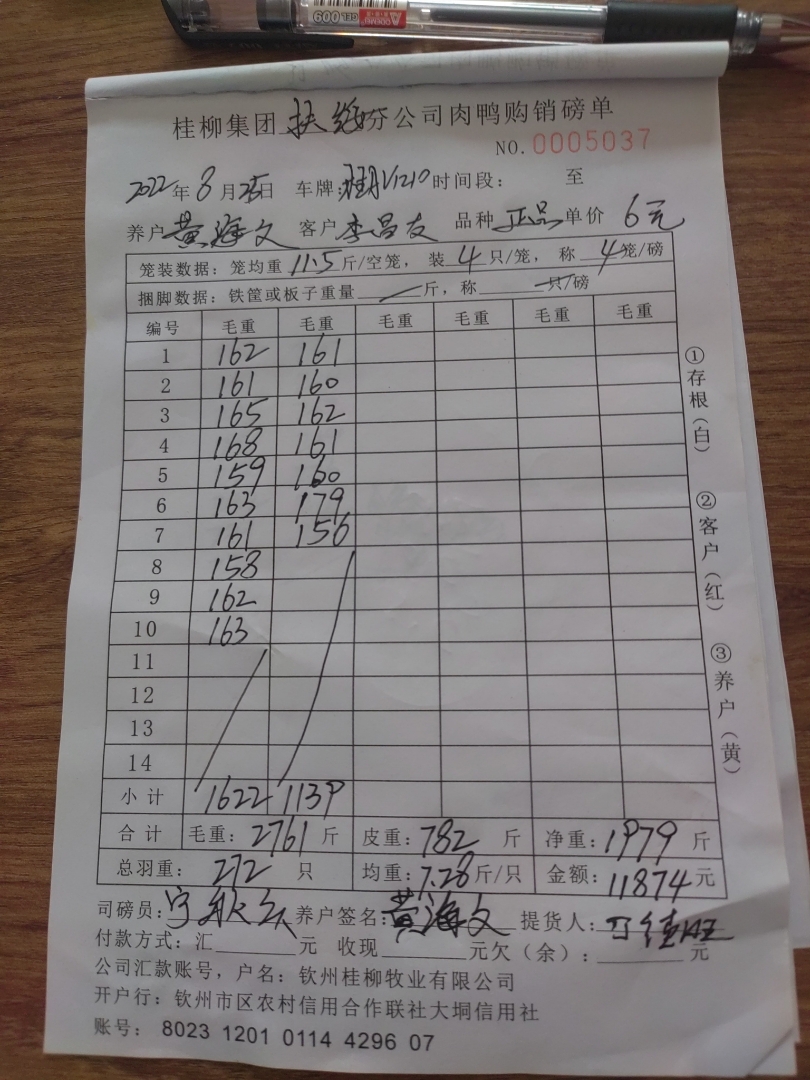 GEL 009
桂柳集团扶绥分公司肉鸭购销磅单
NO.0005037
2022年8月25日 车牌:V1210 时间段: 至
养户黄海文 客户李昌友 品种正品单价6元
笼装数据:笼均重11.5斤/空笼,装4只/笼,称4笼/磅
捆脚数据:铁筐或板子重量 斤,称 只/磅
编号 毛重 毛重 毛重 毛重 毛重 毛重
1 162 161
2 161 160
3 165 162
4 168 161
5 159 160
6 163 179
7 161 156
8 158
9 162
10 163
11
12
13
14
小计 1622 1139
合计 毛重:2761斤 皮重:782斤 净重:1979斤
总羽重:272只 均重:7.28斤/只 金额:11874元
①存根(白)
②客户(红)
③养户(黄)
司磅员: 养户签名:黄海文 提货人:
付款方式:汇 元 收现 元欠(余): 元
公司汇款账号,户名:钦州桂柳牧业有限公司
开户行:钦州市区农村信用合作联社大垌信用社
账号: 8023 1201 0114 4296 07